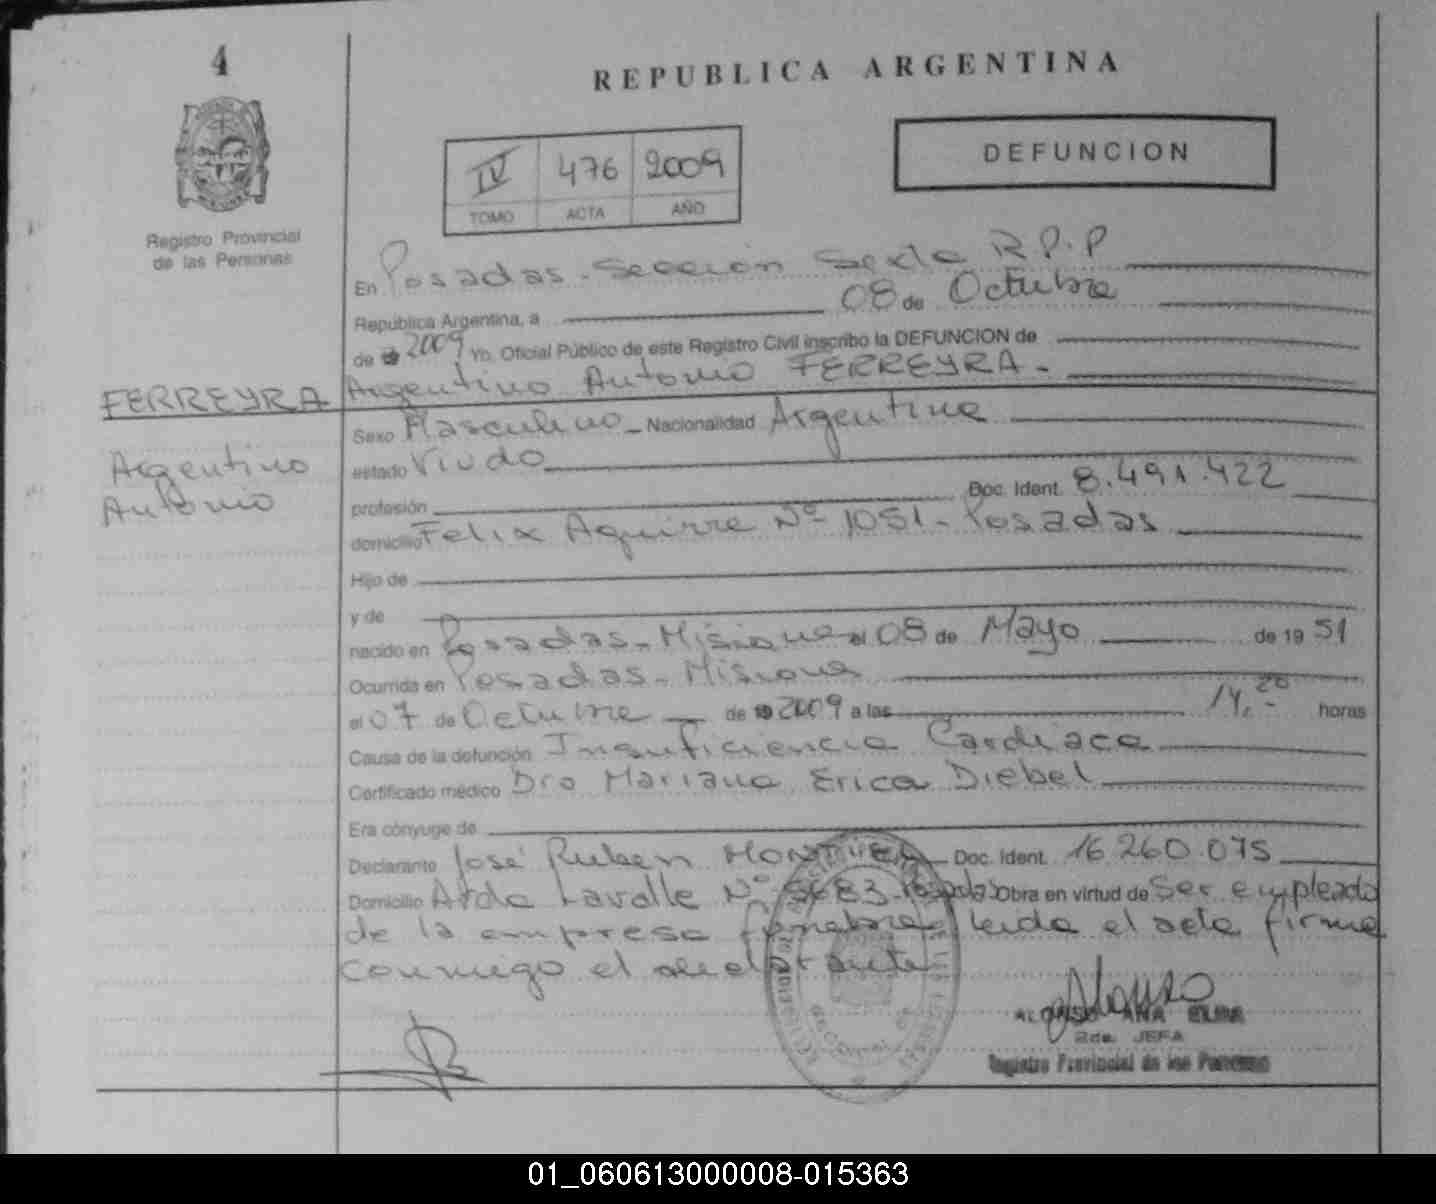 4
REPUBLICA ARGENTINA
DEFUNCION
IV 476 2009
TOMO ACTA AÑO
Registro Provincial
de las Personas
En Posadas - Sección Sexta R.P.P
República Argentina, a 08 de Octubre
de 19 2009 Yo, Oficial Público de este Registro Civil inscribo la DEFUNCION de
Argentino Antonio FERREYRA.-
FERREYRA
Argentino
Antonio
Sexo Masculino - Nacionalidad Argentina
estado Viudo
profesión Doc. Ident. 8.491.422
domicilio Felix Aguirre Nº 1051 - Posadas
Hijo de
y de
nacido en Posadas - Misiones el 08 de Mayo de 19 51
Ocurrida en Posadas - Misiones
el 07 de Octubre de 19 2009 a las 14,20 horas
Causa de la defunción Insuficiencia Cardiaca
Certificado médico Dra Mariana Erica Diebel
Era cónyuge de
Declarante José Ruben Doc. Ident. 16.260.075
Domicilio Avda Lavalle Nº Posadas Obra en virtud de Ser empleado
de la empresa funebre, leida el acta firma
conmigo el declarante
ALONSO ANA ELBA
2da. JEFA
Registro Provincial de las Personas
01_060613000008-015363